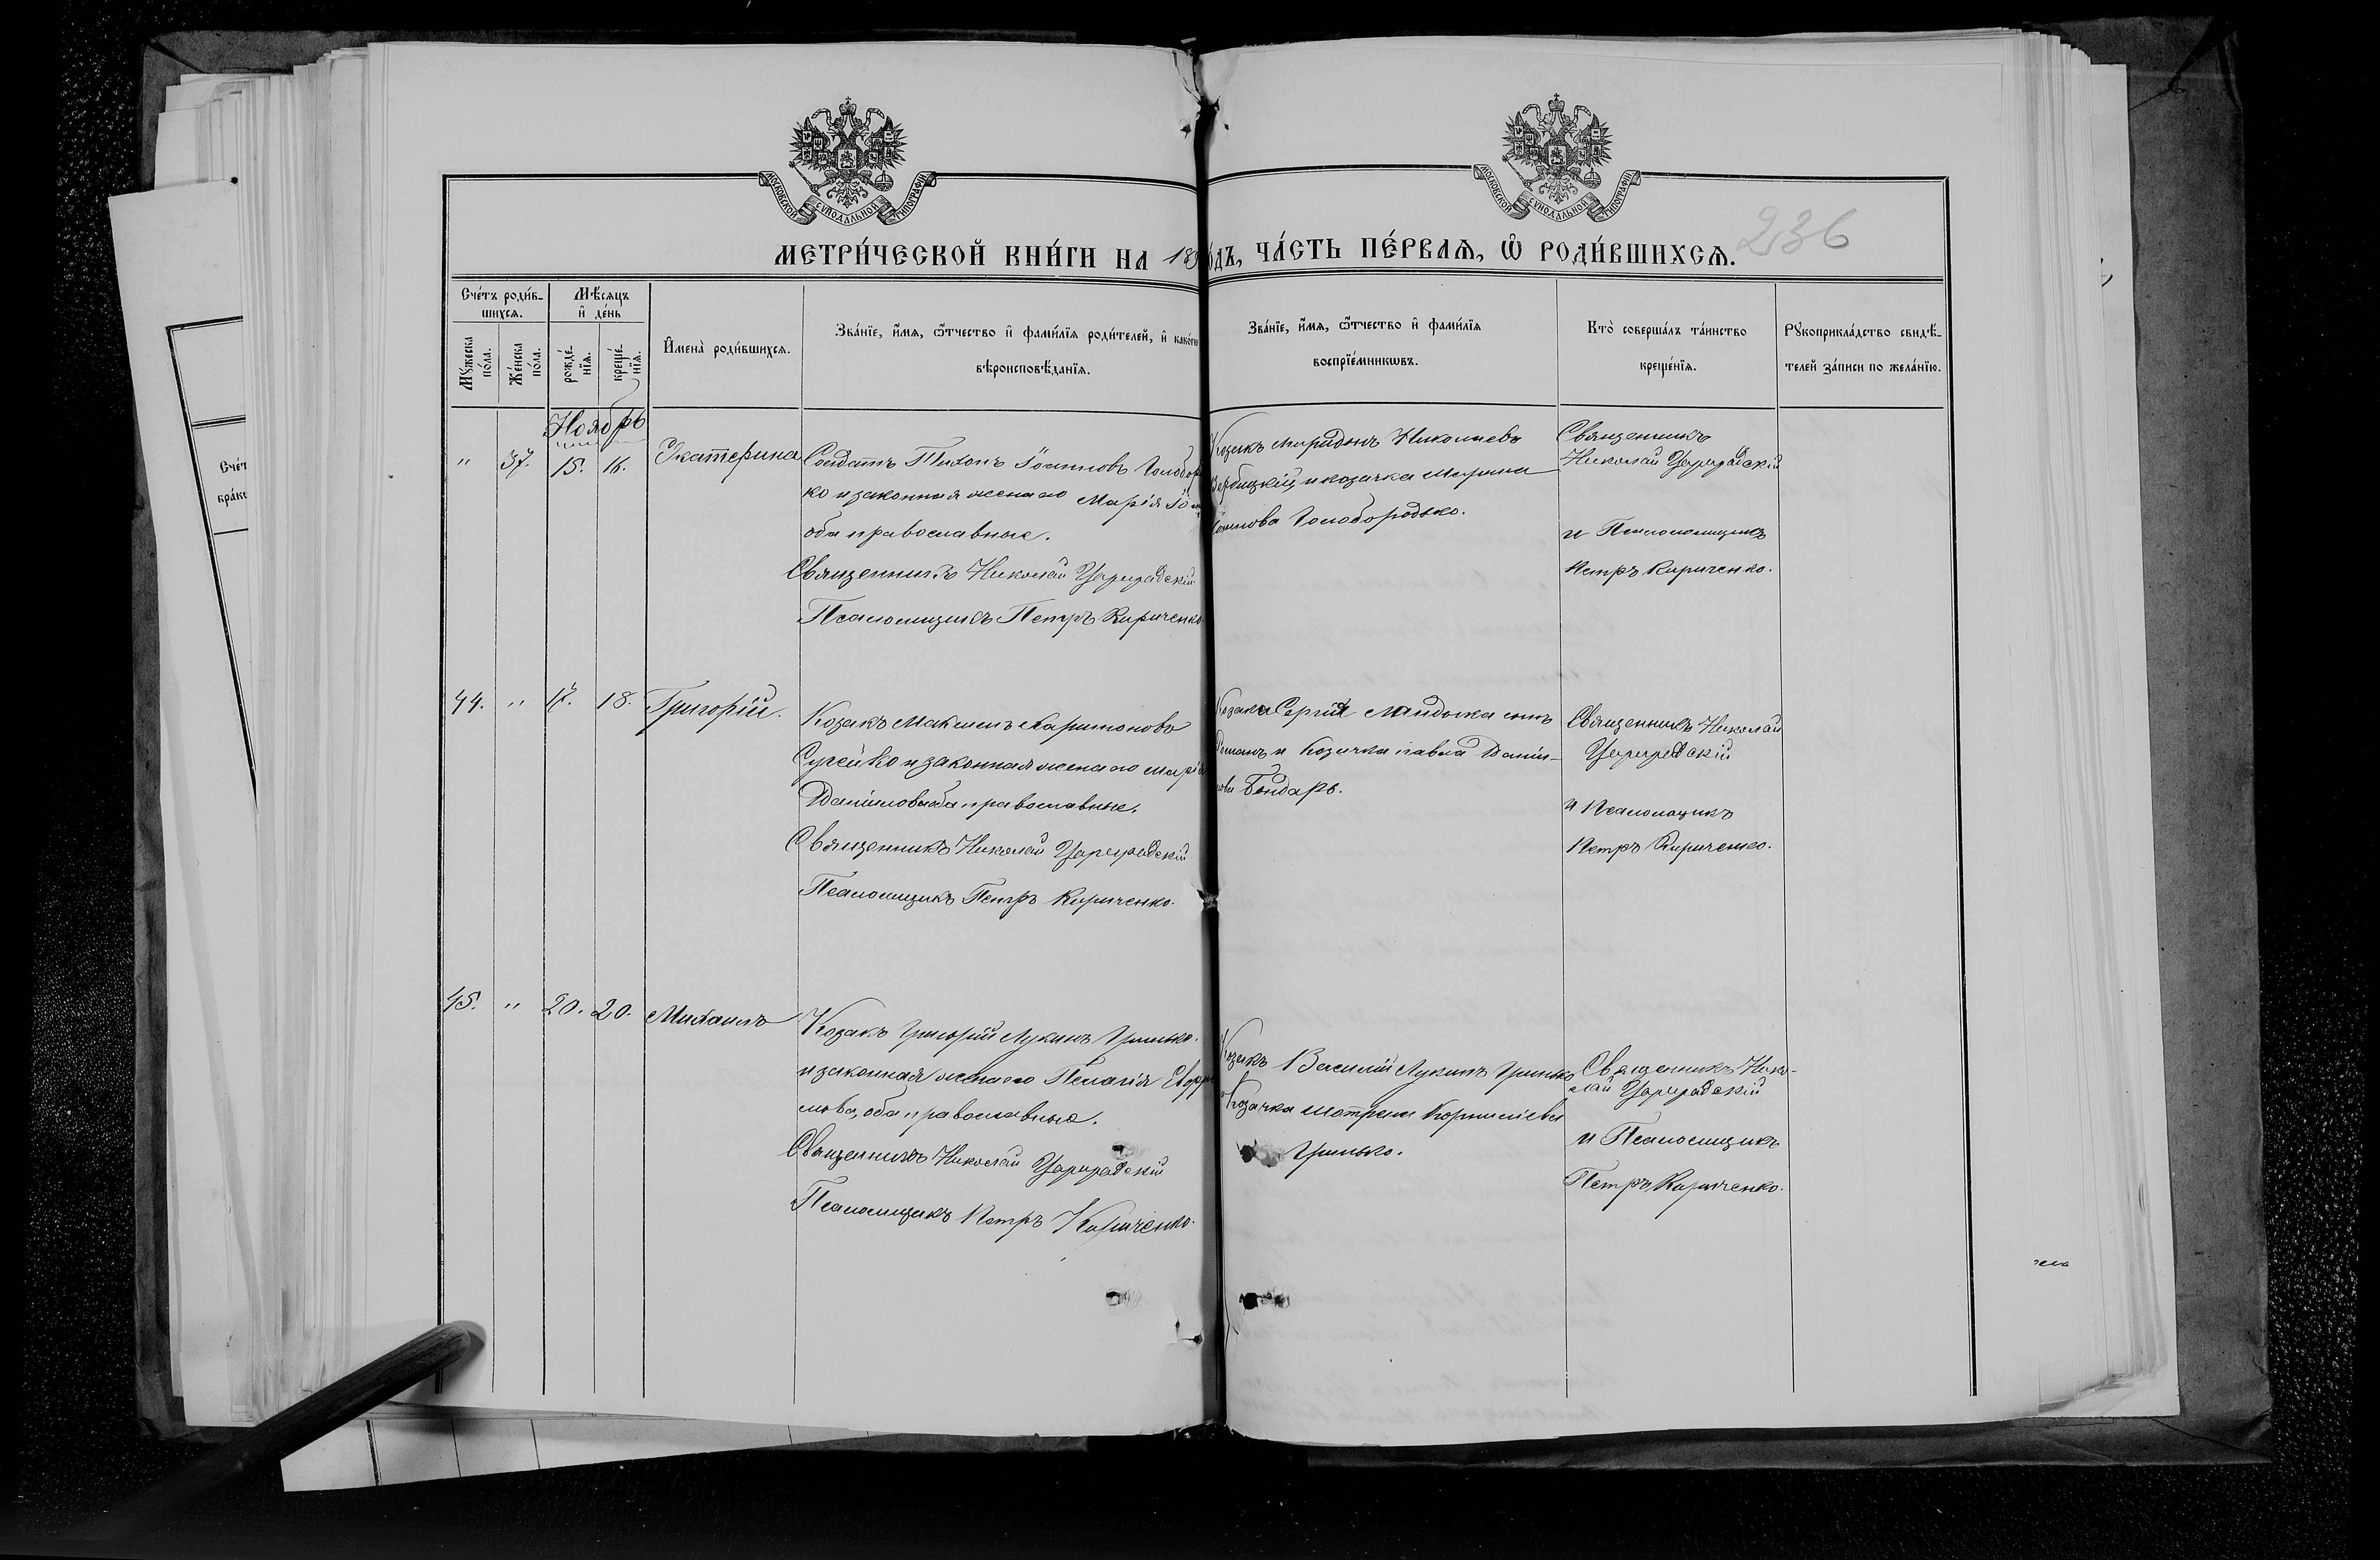 МОСКОВСКОЙ СѴНОДАЛЬНОЙ ТИПОГРАФІИ
МОСКОВСКОЙ СѴНОДАЛЬНОЙ ТИПОГРАФІИ
236
МЕТРИ́ЧЕСКОЙ КНИ́ГИ НА 189
О́ДЪ, ЧА́СТЬ ПЕ́РВАѦ, Ѡ҆ РОДИ́ВШИХСѦ.
Сче́тъ роди́в-
шихсѧ.
Мѣ́сѧцъ
и҆ де́нь
Мꙋ́жеска
по́ла.
Же́нска
по́ла.
рожде́-
нїѧ.
креще́-
нїѧ.
И҆мена̀ роди́вшихсѧ.
Зва́нїе, и҆́мѧ, ѻ҆́тчество и҆ фами́лїѧ роди́телей, и҆ како́гѡ
вѣроисповѣ́данїѧ.
Зва́нїе, и҆́мѧ, ѻ҆́тчество и҆ фами́лїѧ
воспрїе́мникѡвъ.
Кто̀ соверша́лъ та́инство
креще́нїѧ.
Рꙋкоприкла́дство свидѣ́-
телей за́писи по жела́нїю.
Сче́т
бра́ко
Ноябрь
" 37. 15. 16. Екатерина
Солдатъ Тихонъ Іоанновъ Голобородь
ко и законная жена его Марія
оба православные.
Священникъ Николай Цареградскій
Псаломщикъ Петръ Кириченко
Козакъ Спиридонъ Николаевъ
Вербицкій и козачка Марина
Голобородько.
Священникъ
Николай Цареградскій
и Псаломщикъ
Петръ Кириченко.
44. " 17. 18. Григорій.
Козакъ Максимъ Харитоновъ
и законная жена его Марія
Даніилова оба православные.
Священникъ Николай Цареградскій
Псаломщикъ Петръ Кириченко.
Козака Сергія сынъ
Романъ и Козачка Павла Даніи-
лова Бондарь.
Священникъ Николай
Цареградскій
и Псаломщикъ
Петръ Кириченко.
45. " 20. 20. Михаилъ
Козакъ Григорій Лукинъ Гринько.
и законная жена его Пелагія
мова, оба православные.
Священникъ Николай Цареградскій
Псаломщикъ Петръ Кириченко.
Козакъ Василій Лукинъ Гринько
Козачка Мотрона Корниліева
Гринько.
Священникъ Нико-
лай Цареградскій
и Псаломщикъ
Петръ Кириченко.